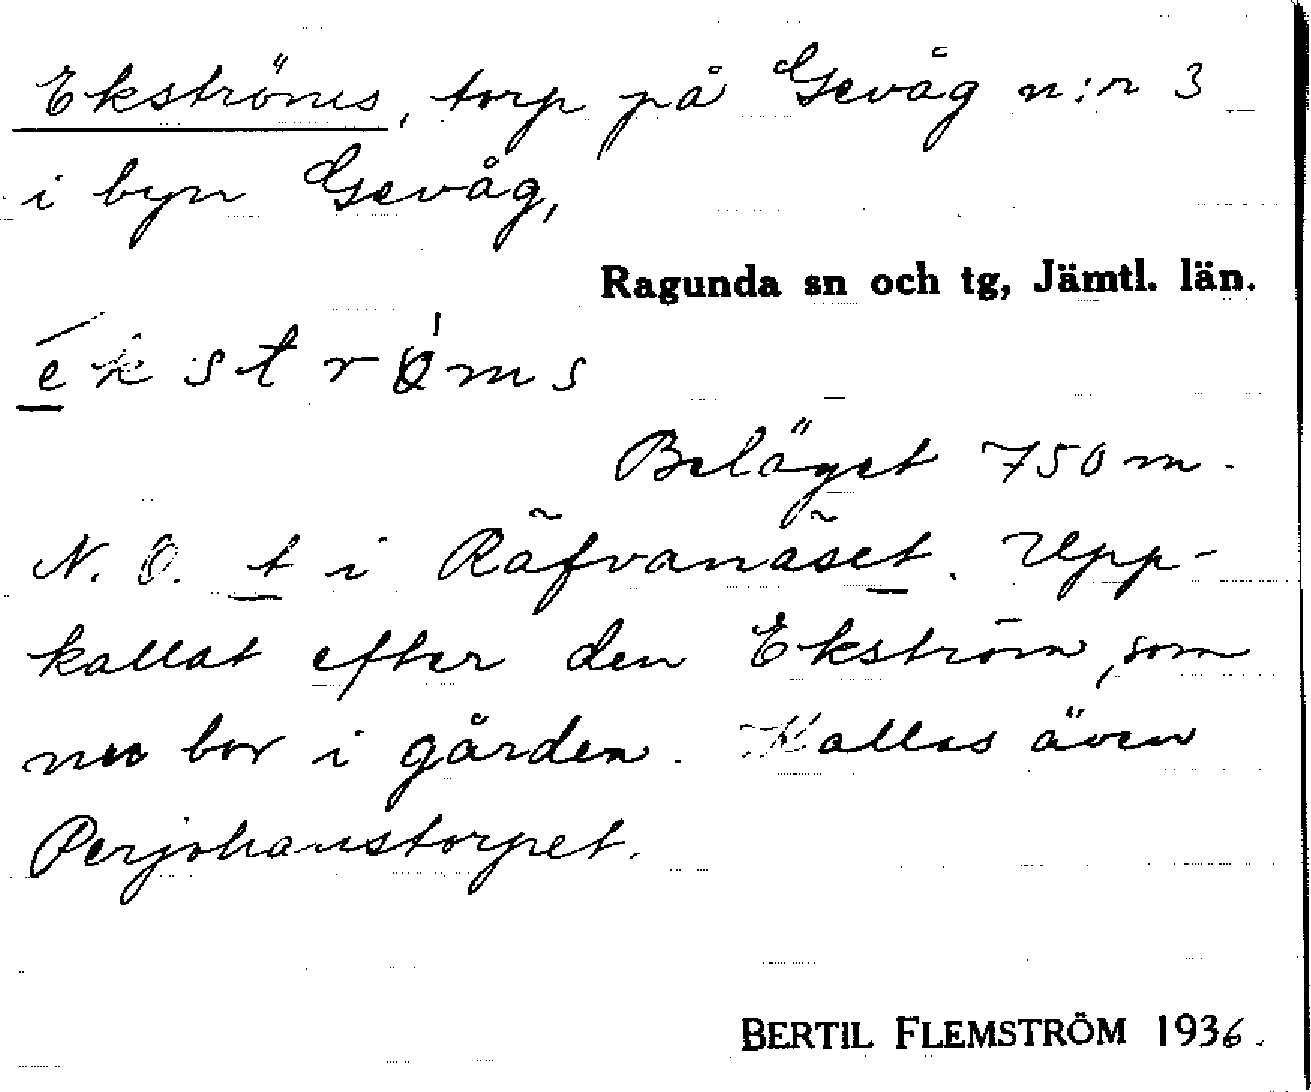 Ekströms, torp på Gevåg n:r 3
i byn Gevåg,
Ragunda sn och tg, Jämtl. län.
ékstrǿms
Beläget 750 m.
N. O. t i Räfvanäset. Upp-
kallat efter den Ekström, som
nu bor i gården. Kallas även
Perjohanstorpet.
BERTIL FLEMSTRÖM 1936.